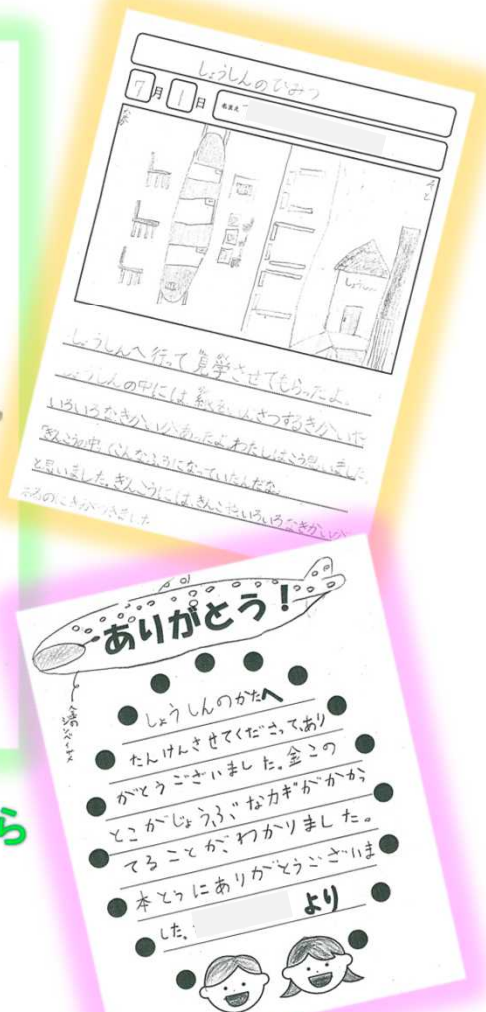 しょうしんのひみつ
7月1日
しょうしん
しょうしんへ行って見学させてもらったよ。
しょうしんの中には紙をいんさつするきかいや
いろいろなきかいがあったよ。わたしはこう思いました。
「ぎんこうの中ってこんなふうになっていたんだな。
と思いました。ぎんこうには、きんこやいろいろなきかいが
あるのにきがつきました
ありがとう!
しょうしんのかたへ
たんけんさせてくださって、あり
がとうございました。金この
とこがじょうぶなカギがかかっ
てることが、わかりました。
本とうにありがとうございま
した。
より
ら